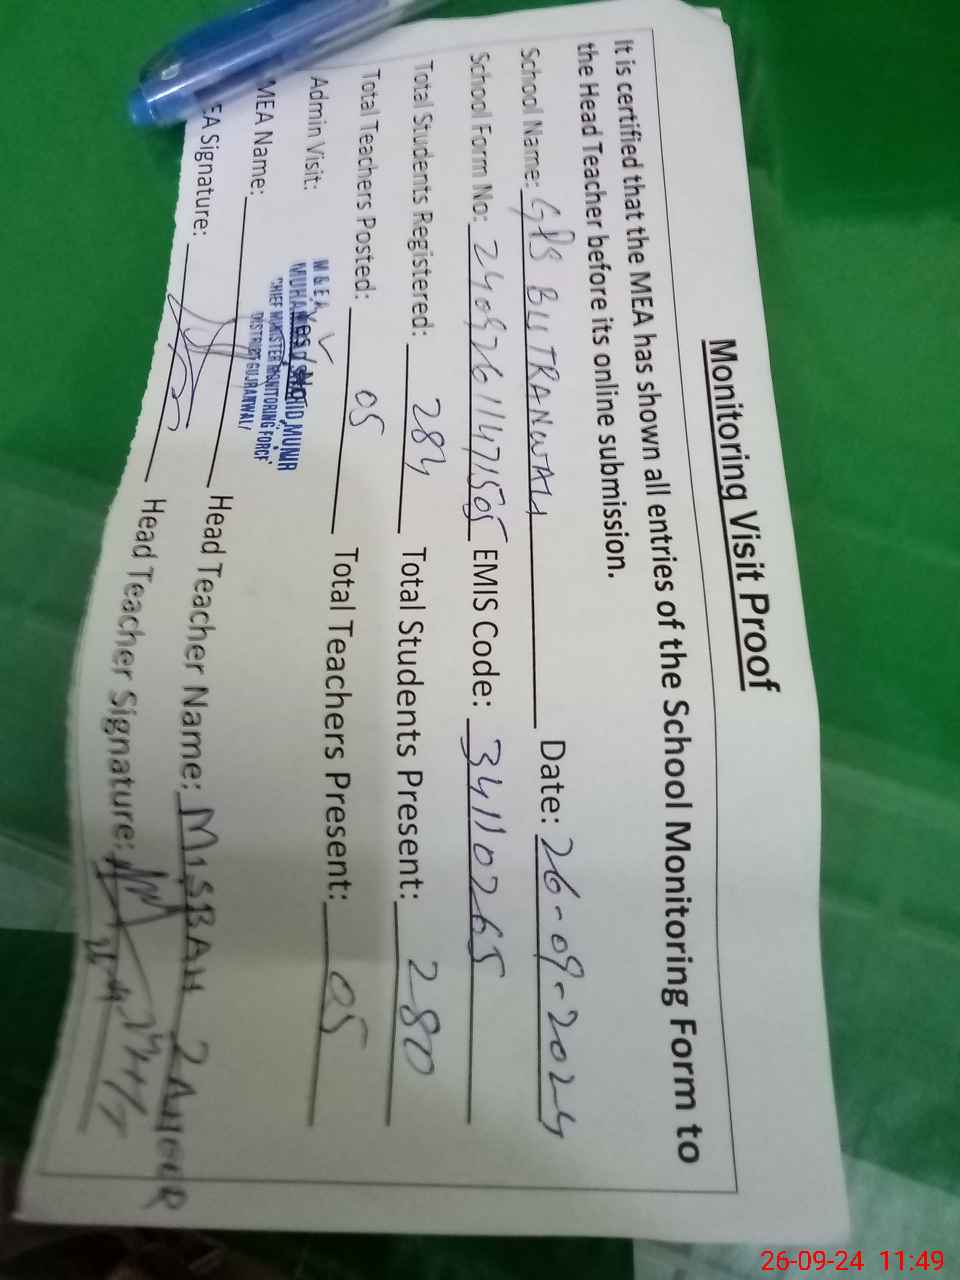 Monitoring Visit Proof
It is certified that the MEA has shown all entries of the School Monitoring Form to
the Head Teacher before its online submission.
School Name: GPS BUTRANWALI Date: 26-09-2024
School Form No: EMIS Code: 34110265
Total Students Registered: 284 Total Students Present: 280
Total Teachers Posted: 05 Total Teachers Present: 05
Admin Visit: Yes / No
M & E A
MUHAMMAD SHAHID MUNIR
CHIEF MINISTER MONITORING FORCE
DISTRICT GUJRANWALA
MEA Name: Head Teacher Name: MISBAH ZAHOOR
EA Signature: Head Teacher Signature:
26-09-24 11:49